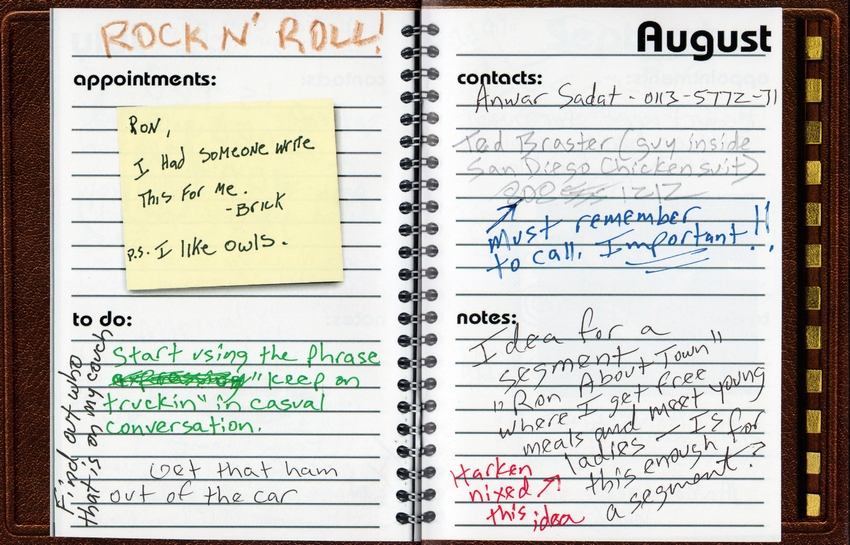 ROCK N' ROLL!
appointments:
RON,
I HAD SOMEONE WRITE
THIS FOR ME.
-BRICK
P.S. I LIKE OWLS.
to do:
Start using the phrase
"keep on
truckin" in casual
conversation.
Get that ham
out of the car
Find out who
that is on my couch
August
contacts:
Anwar Sadat - 0113-5772-71
Ted Braster (guy inside
San Diego Chicken suit)
1212
Must remember
to call. Important!!
notes:
Idea for a
segment
"Ron About Town"
where I get free
meals and meet young
ladies – Is
this enough for
a segment?
Harken
nixed
this idea